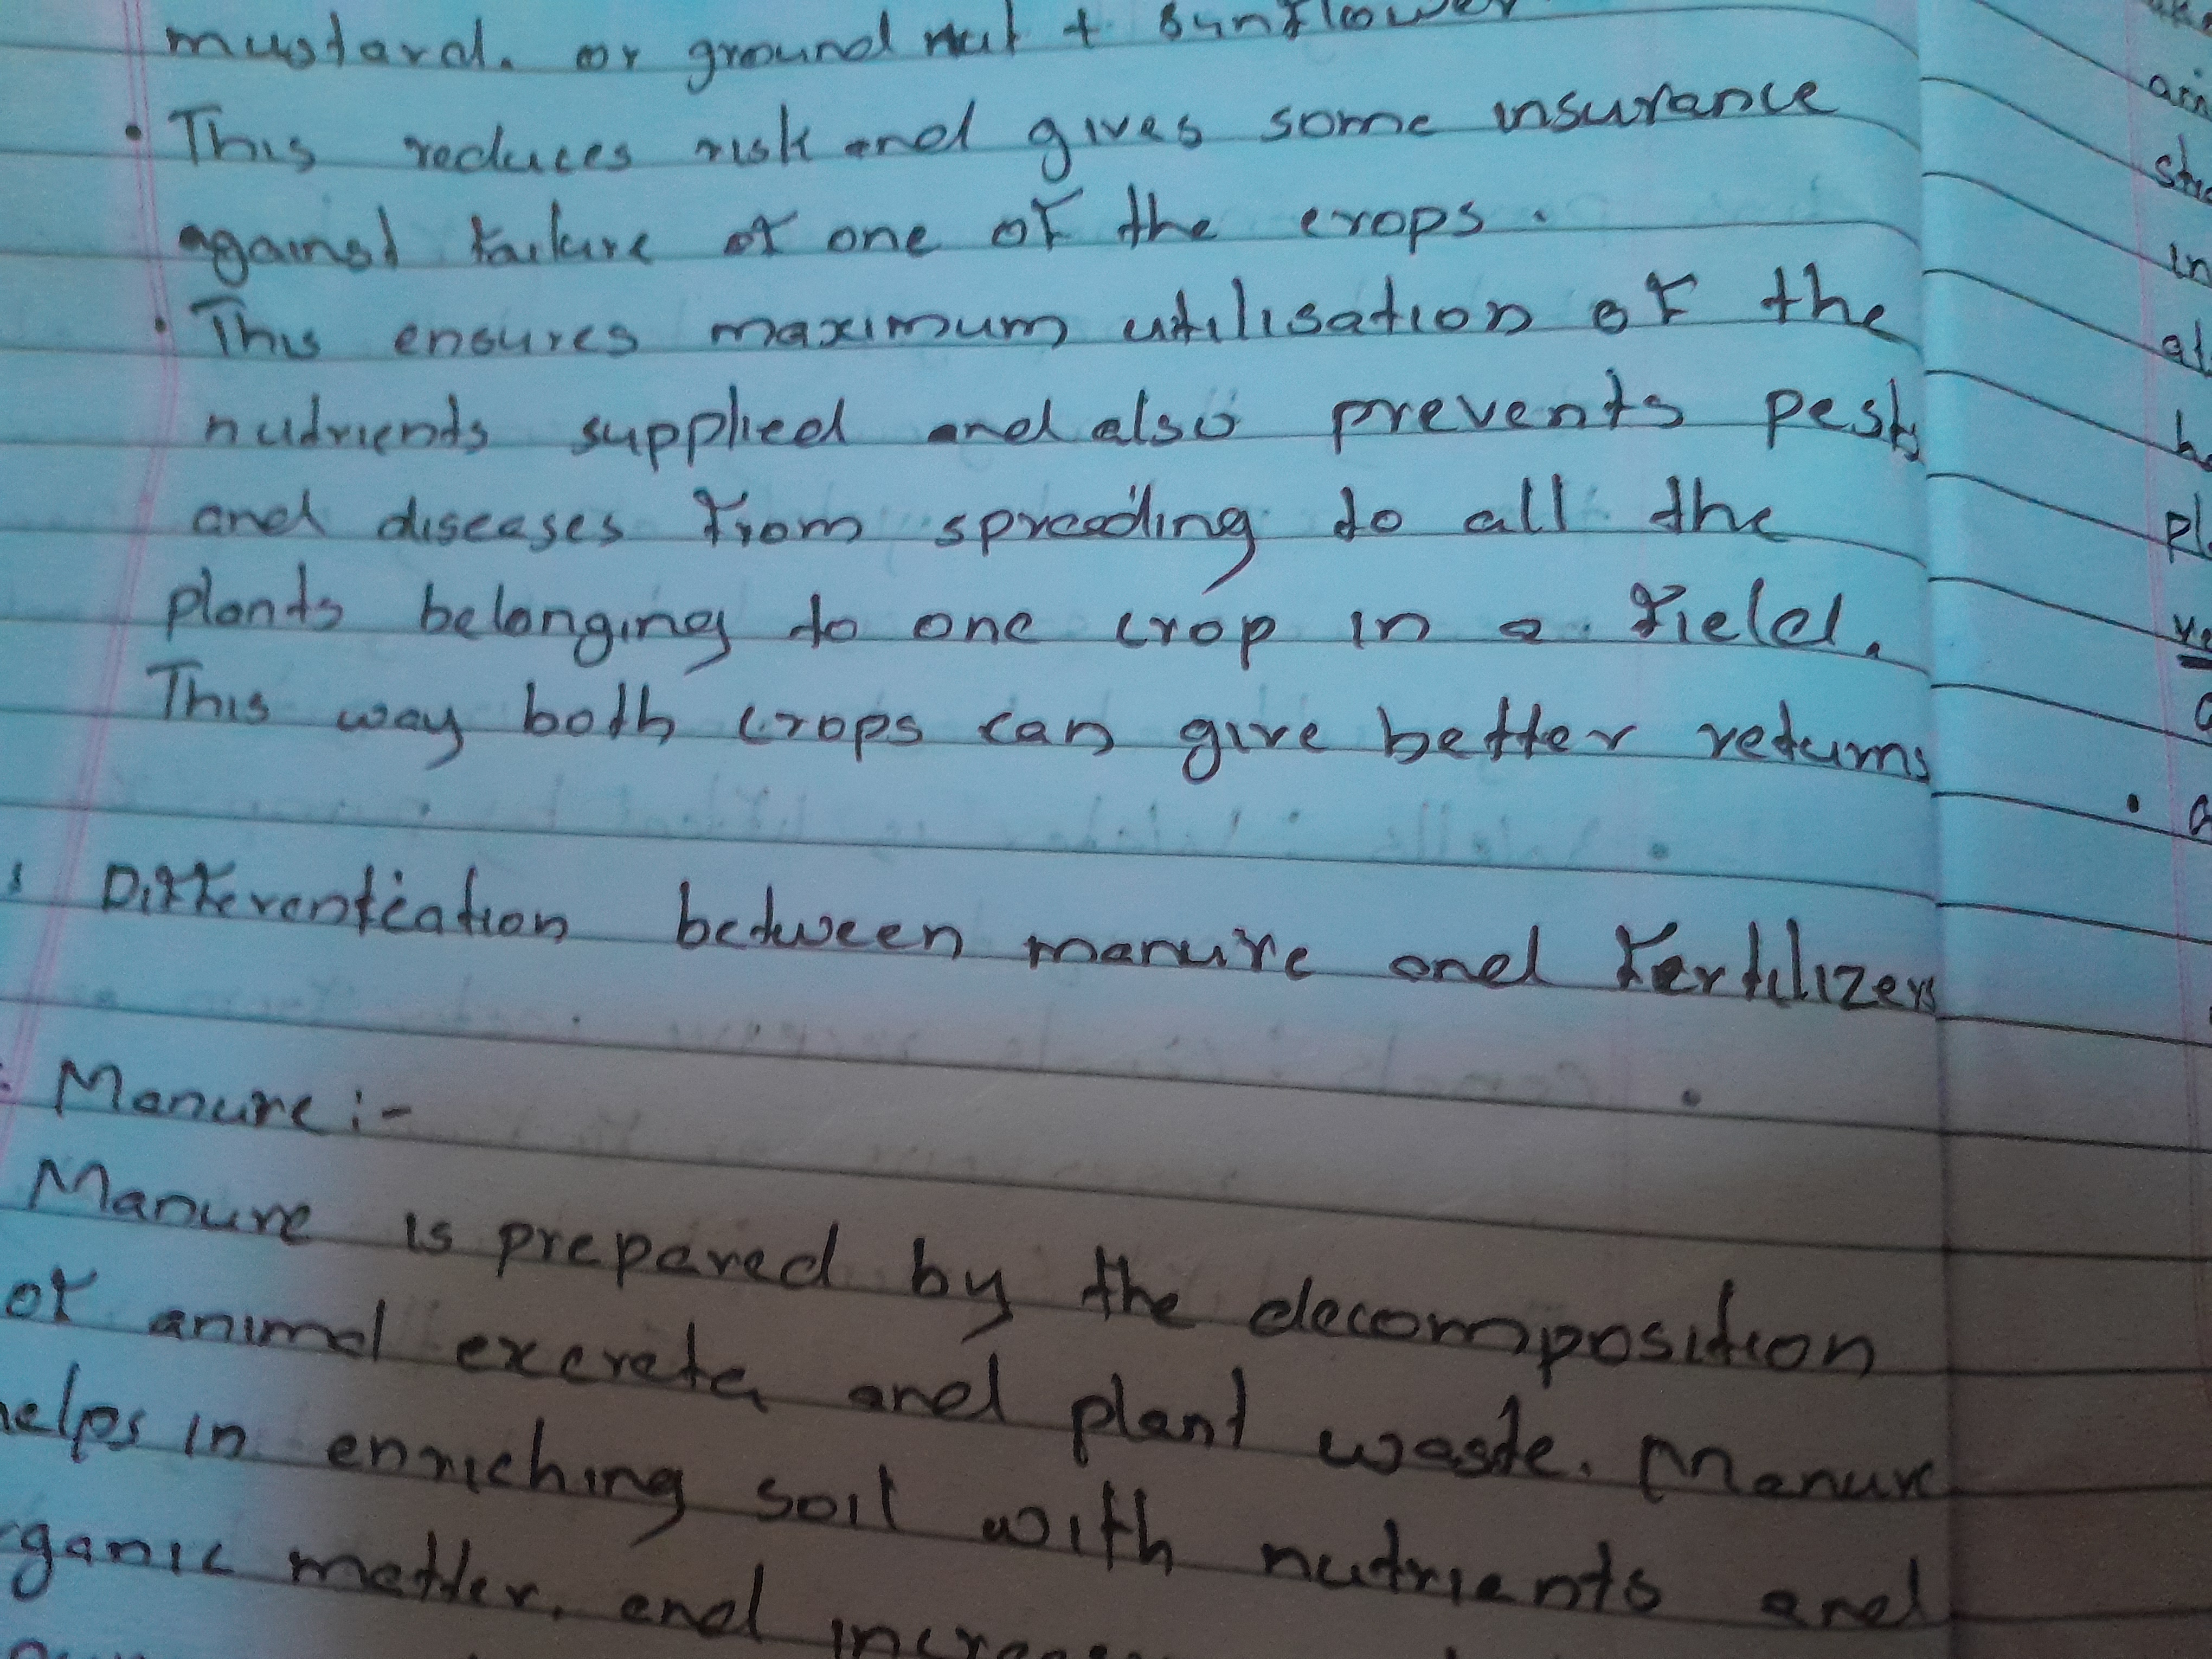 mustard. or ground nut + sunflower
• This reduces risk and gives some insurance
against failure of one of the crops.
• This ensures maximum utilisation of the
nutrients supplied and also prevents pests
and diseases from spreading to all the
plants belonging to one crop in a field.
This way both crops can give better returns
Differentiation between manure and fertilizers
Manure :-
Manure is prepared by the decomposition
of animal excreta and plant waste. Manure
helps in enriching soil with nutrients and
organic matter. and